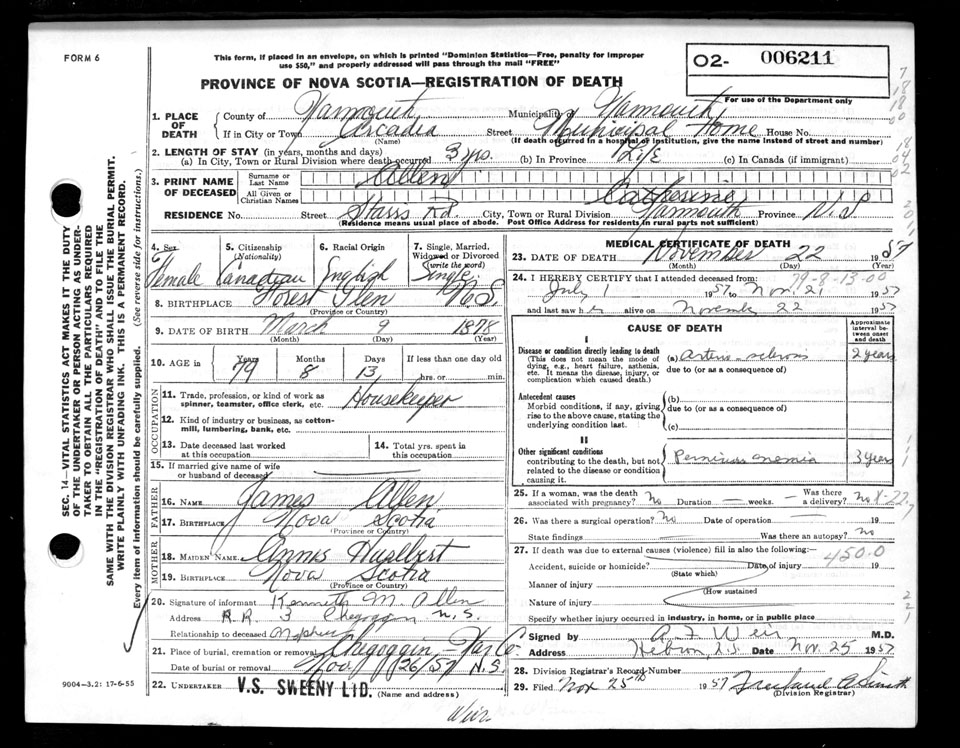 FORM 6
This form, if placed in an envelope, on which is printed "Dominion Statistics—Free, penalty for improper
use $50," and properly addressed will pass through the mail "FREE"
O2- 006211
PROVINCE OF NOVA SCOTIA—REGISTRATION OF DEATH
For use of the Department only
1. PLACE OF DEATH
County of Yarmouth Municipality of Yarmouth
If in City or Town Arcadia Street Municipal Home House No.
(Name) (If death occurred in a hospital or institution, give the name instead of street and number)
2. LENGTH OF STAY (in years, months and days)
(a) In City, Town or Rural Division where death occurred 3 yrs. (b) In Province Life (c) In Canada (if immigrant)
3. PRINT NAME OF DECEASED
Surname or Last Name Allen
All Given or Christian Names Catherine
RESIDENCE No. Street Starrs Rd. City, Town or Rural Division Yarmouth Province N.S.
(Residence means usual place of abode. Post Office Address for residents in rural parts not sufficient)
4. Sex Female
5. Citizenship (Nationality) Canadian
6. Racial Origin English
7. Single, Married, Widowed or Divorced (write the word) Single
8. BIRTHPLACE Forest Glen N.S.
(Province or Country)
9. DATE OF BIRTH March 9 1878
(Month) (Day) (Year)
10. AGE in Years Months Days If less than one day old
79 8 13 hrs. or min.
OCCUPATION
11. Trade, profession, or kind of work as
spinner, teamster, office clerk, etc. Housekeeper
12. Kind of industry or business, as cotton-
mill, lumbering, bank, etc.
13. Date deceased last worked
at this occupation
14. Total yrs. spent in
this occupation
15. If married give name of wife
or husband of deceased
FATHER
16. NAME James Allen
17. BIRTHPLACE Nova Scotia
MOTHER
18. MAIDEN NAME Annis
19. BIRTHPLACE Nova Scotia
(Province or Country)
20. Signature of informant Kenneth M. Allen
Address R.R. 3 Chegoggin N.S.
Relationship to deceased Nephew
21. Place of burial, cremation or removal Chegoggin Yar. Co.
Date of burial or removal Nov. 26/57 N.S.
22. UNDERTAKER V.S. SWEENY LTD. (Name and address)
9004—3.2: 17-6-55
Weir
SEC. 14—VITAL STATISTICS ACT MAKES IT THE DUTY
OF THE UNDERTAKER OR PERSON ACTING AS UNDER-
TAKER TO OBTAIN ALL THE PARTICULARS REQUIRED
IN THE "REGISTRATION OF DEATH" AND TO FILE THE
SAME WITH THE DIVISION REGISTRAR WHO SHALL ISSUE THE BURIAL PERMIT.
WRITE PLAINLY WITH UNFADING INK. THIS IS A PERMANENT RECORD.
Every item of information should be carefully supplied. (See reverse side for instructions.)
MEDICAL CERTIFICATE OF DEATH
23. DATE OF DEATH November 22 1957
(Month) (Day) (Year)
24. I HEREBY CERTIFY that I attended deceased from: 79-8-13-00
July 1 1957 to Nov. 21 1957
and last saw her alive on November 22 1957
CAUSE OF DEATH
Approximate interval between onset and death
I
Disease or condition directly leading to death
(This does not mean the mode of
dying, e.g., heart failure, asthenia,
etc. It means the disease, injury, or
complication which caused death.)
(a) Arterio-sclerosis 2 years
due to (or as a consequence of)
Antecedent causes
Morbid conditions, if any, giving
rise to the above cause, stating the
underlying condition last.
(b)
due to (or as a consequence of)
(c)
II
Other significant conditions
contributing to the death, but not
related to the disease or condition
causing it.
Pernicious anemia 3 years
25. If a woman, was the death
associated with pregnancy? No Duration — weeks. Was there
a delivery? No
26. Was there a surgical operation? No Date of operation — 19
State findings — Was there an autopsy? No
27. If death was due to external causes (violence) fill in also the following:— 450.0
Accident, suicide or homicide? Date of injury 19
(State which)
Manner of injury
(How sustained
Nature of injury
Specify whether injury occurred in industry, in home, or in public place
Signed by A F Weir M.D.
Address Hebron, N.S. Date Nov. 25 1957
28. Division Registrar's Record Number
29. Filed Nov 25th 1957 Freeland A Smith
(Division Registrar)